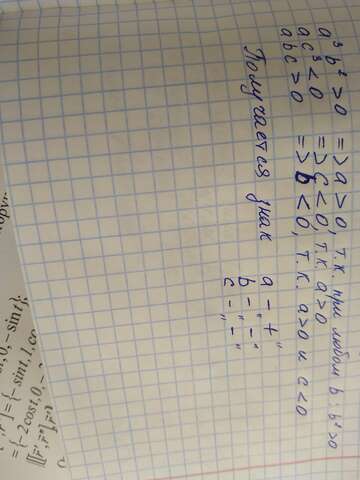 a³b²>0 => a>0, т.к. при любом b: b²>0
ac³<0 => c<0, т.к. a>0
abc>0 => b<0, т.к. a>0 и c<0
Получается знак
a - "+"
b - "-"
c - "-"